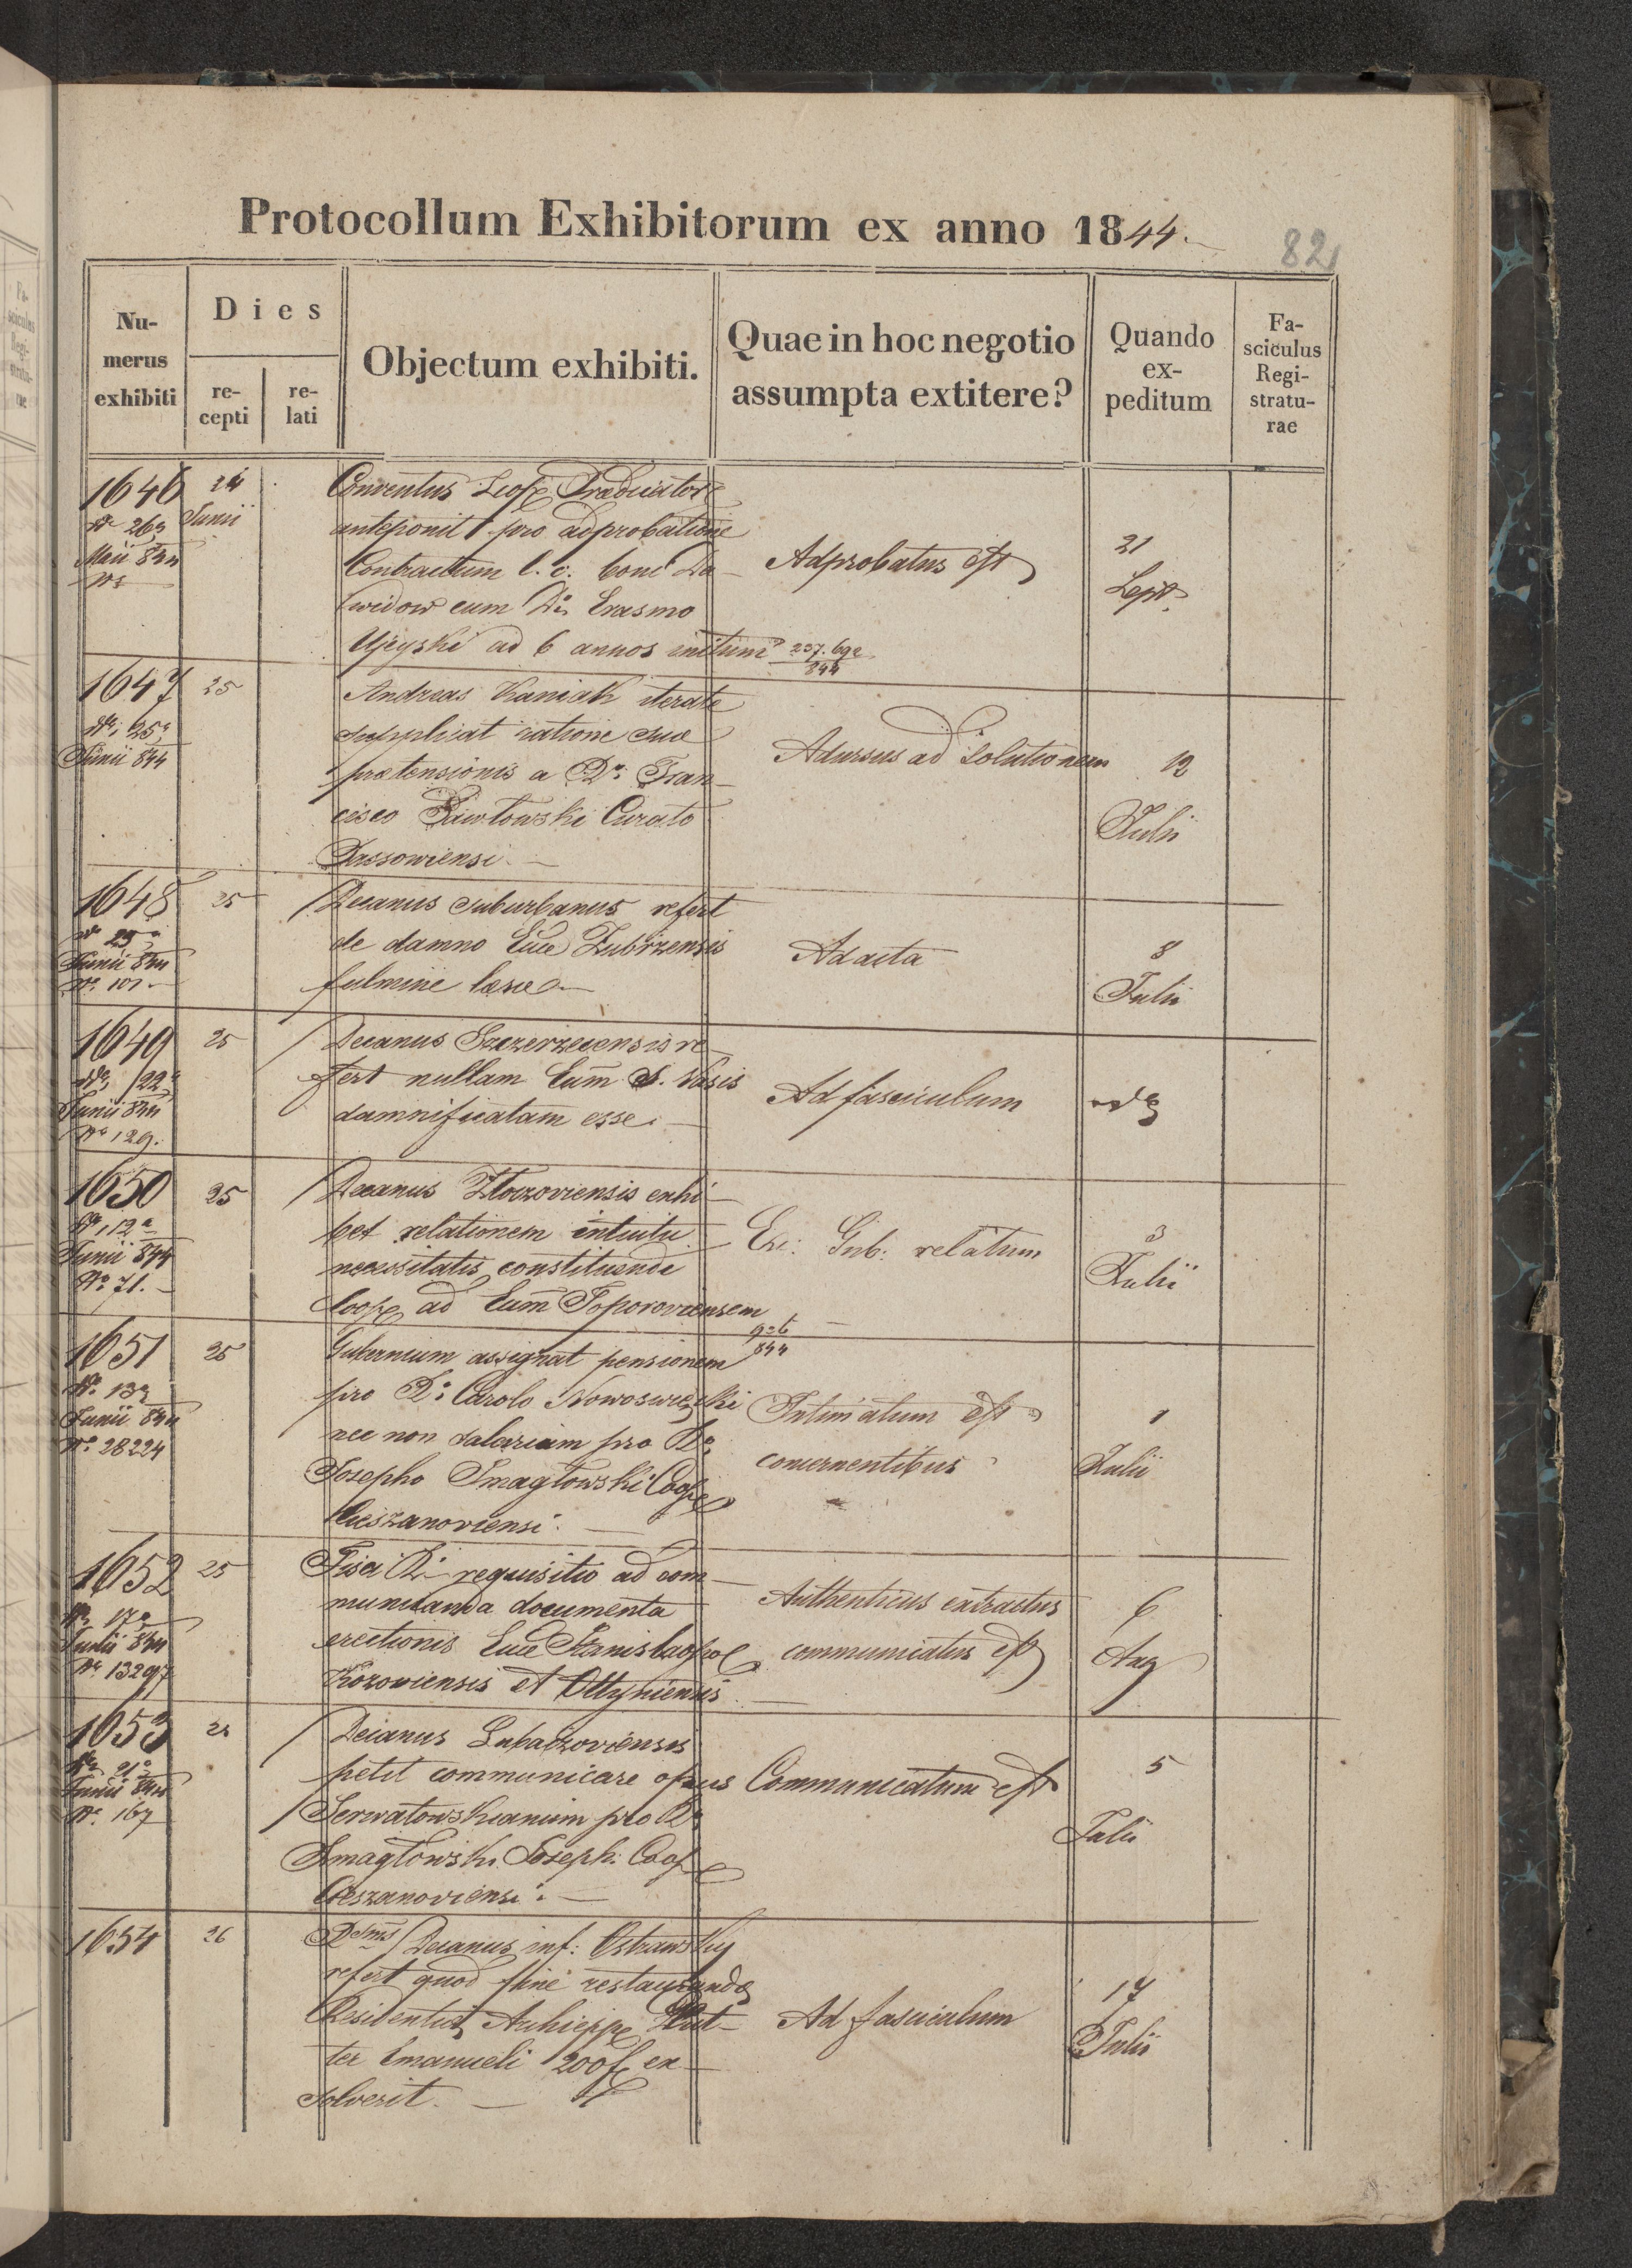 Protocollum Exhibitorum ex anno 1844.
82
Nu-
merus
exhibiti
Dies
re-
cepti
re-
lati
Objectum exhibiti.
Quae in hoc negotio
assumpta extitere?
Quando
ex-
peditum
Fa-
sciculus
Regi-
stratu-
rae
1646
24
Junii
Maii 844
Conventus Leop Prædicator
anteponit pro adprobatione
Contractum l. c. boni Da-
widow eum Dn Erasmo
Ujeyski ad 6 annos initum
Adprobatus est
21
Sept.
1647
25
Junii 844
Andreas Kaniak iterate
supplicat ratione suæ
prætensionis a Dn. Fran-
cisco Pawłowski Curato
Adversus ad Solutionem
12
Julii
1648
25
Junii 844
No 101
Decanus Suburbanus refert
de damno Eccæ Zubrzensis
fulmine læsæ
Ad acta
8
Julii
1649
25
22
Junii 844
No 129.
Decanus Szczerzecensis re-
fert nullam Eccam S. Vasis
damnificatam esse.
Ad fasciculum
1650
25
12a
Junii 844
No 71.
Decanus Złoczoviensis exhi-
bet relationem intuitu
necessitatis constituendi
Coop ad Eccam Toporoviensem
Exc: Gub: relatum
3
Julii
1651
25
13
Junii 844
No 28224
Gubernium assignat pensionem
pro Dn: Carolo
nec non salarium pro Dn
Josepho Smagłowski Coop
Cieszanoviensi.
Intimatum est
concernentibus
1
Julii
1652
25
17a
Junii 844
No 13297
Fisci Ri requisitio ad com-
municanda documenta
erectionis Eccæ Stanislaopol
Kozoviensis et Ottyniensis
Authenticus extractus
communicatus est
6
Aug
1653
25
21a
Junii 844
No. 167
Decanus Lubaczoviensis
petit communicare opus
Serwatowskianum pro Dn
Smagłowski Joseph: Coop
Cieszanoviensi.
Communicatum est
5
Julii
1654
26
Decanus inf: Ostrawsky
refert quod fine restaurandæ
Residentiæ Archieppe
Emanueli 200 f ex-
solverit.
Ad fasciculum
17
Julii